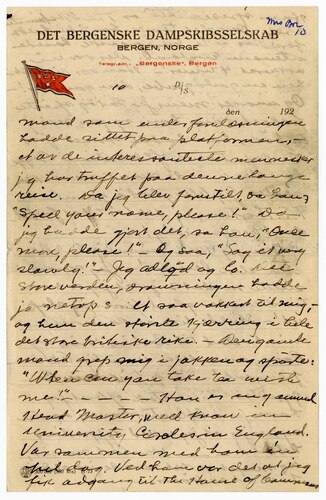 Mrs Om
10
DET BERGENSKE DAMPSKIBSSELSKAB
BERGEN, NORGE
Telegr.adr.: „Bergenske", Bergen
10 D/S
den 192
mand som under forelæsningen
hadde sittet paa platformen, -
et av de interessanteste mennesker
jeg har truffet paa denne lange
reise. Da jeg blev forestilt, sa han,
"Spell your name, please!" Da
jeg hadde gjort det, sa han, "Once
more, please!" - Og saa, "Say it very
slowly." - Jeg adlød og lo. Hele
store verden, dronningen hadde
jo netop smilt saa vakkert til mig, -
og hun den største kjærring i hele
det store britiske rike. - Den gamle
mand grep mig i jakken og spurte:
"When can you take tea with
me?" - - - Han er en gammel
Head Master, vel known in
University Circles in England.
Var sammen med ham en
hel dag. Ved ham var det at jeg
fik adgang til the House of Commons